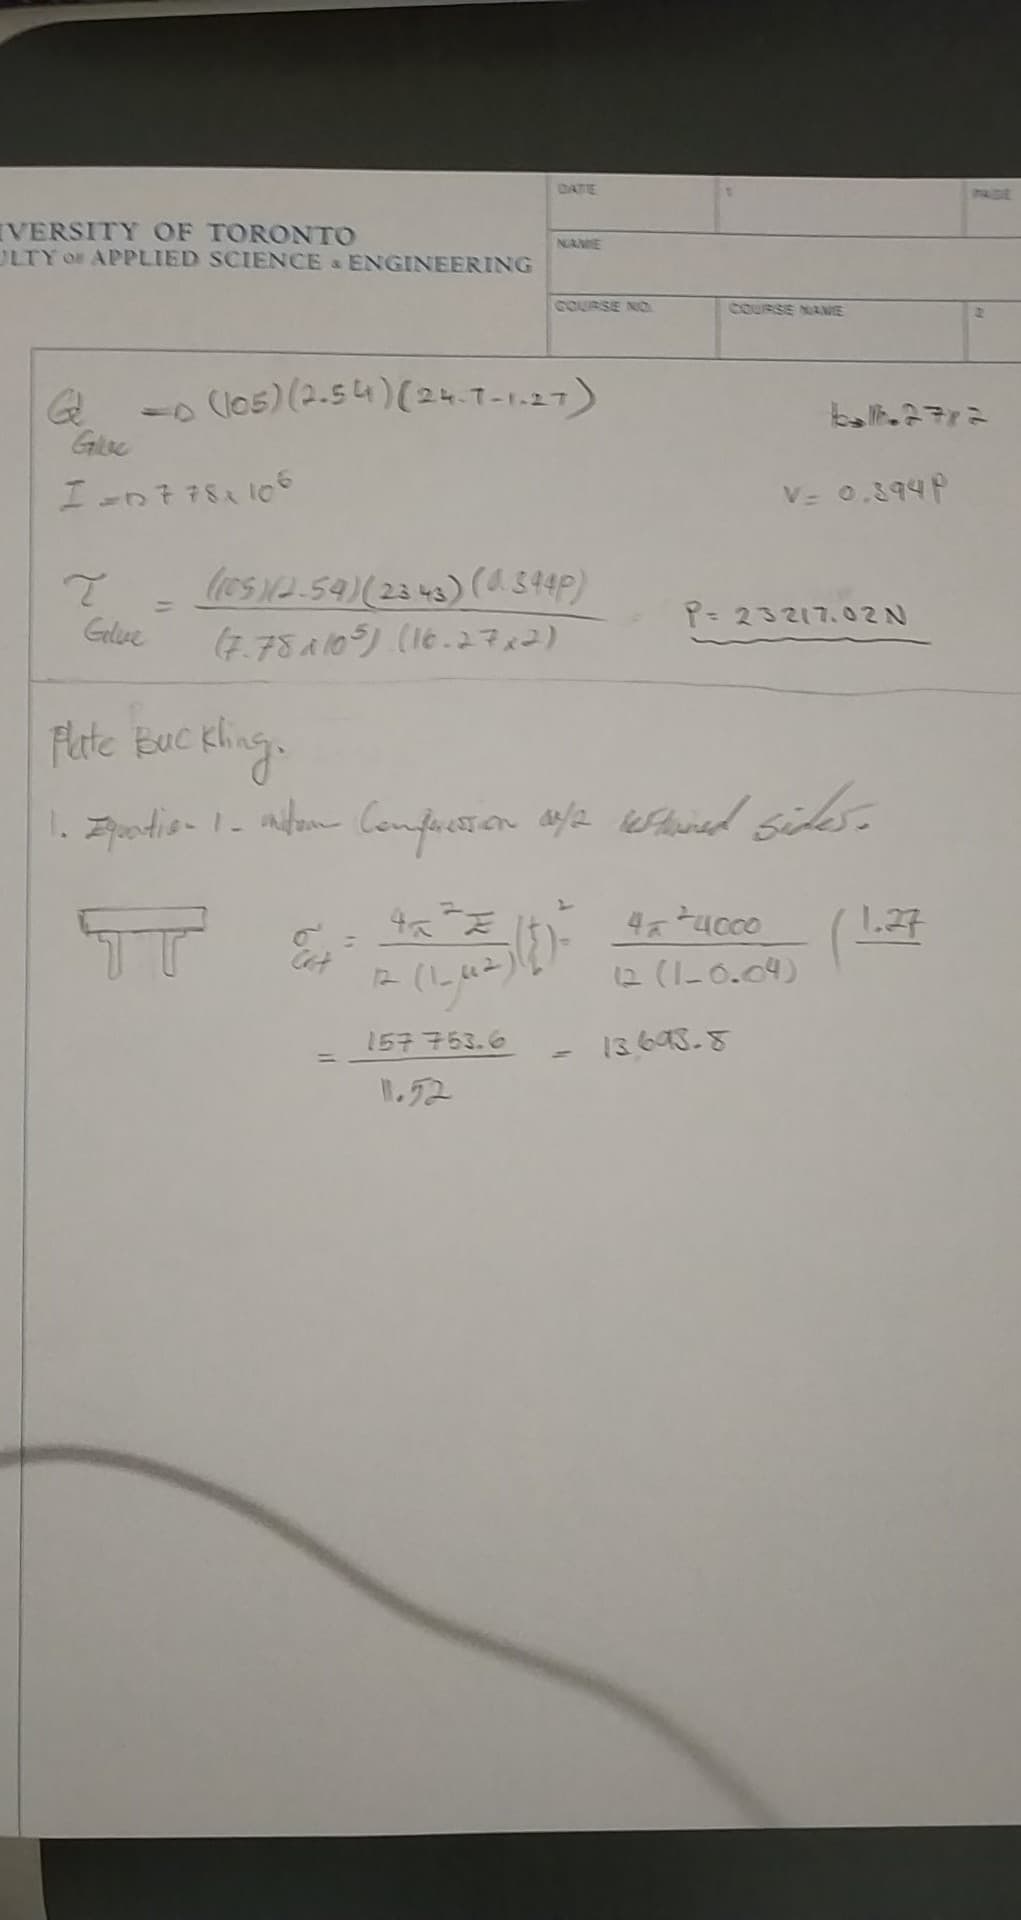 DATE
1
PAGE
IVERSITY OF TORONTO
ULTY OF APPLIED SCIENCE & ENGINEERING
NAME
COURSE NO.
COURSE NAME
2
Q Glue => (105)(2.54)(24.7-1.27)
I => 778x10⁶
V= 0.394P
τ Glue = (105)(2.54)(23.43)(0.394P) / (7.78x10⁵) (16.27x2)
P= 23217.02N
Plate Buckling.
1. Equation 1 - Compression w/2 restrained sides.
σ crit = 4π²E / 12 (1-μ²) (t/b)² = 4π²4000 / 12 (1-0.04) (1.27
= 157753.6 / 11.52 = 13693.8